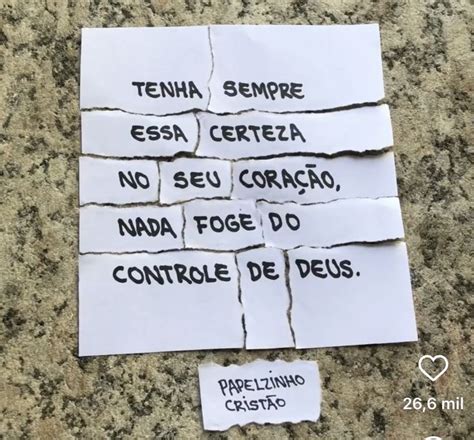 TENHA SEMPRE
ESSA CERTEZA
NO SEU CORAÇÃO,
NADA FOGE DO
CONTROLE DE DEUS.
PAPELZINHO
CRISTÃO
26,6 mil